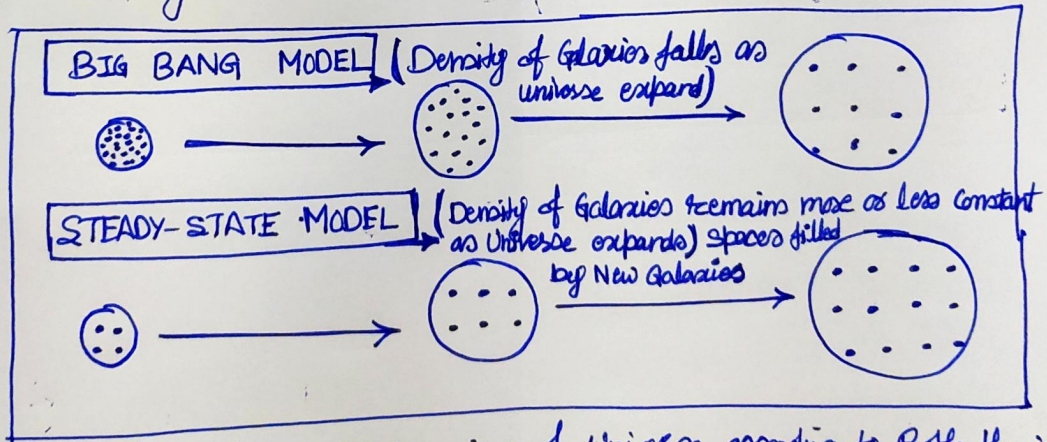 BIG BANG MODEL (Density of Galaxies falls as
universe expand)
STEADY-STATE MODEL (Density of Galaxies remains more or less constant
as Universe expands) spaces filled
by New Galaxies
of Universe according to